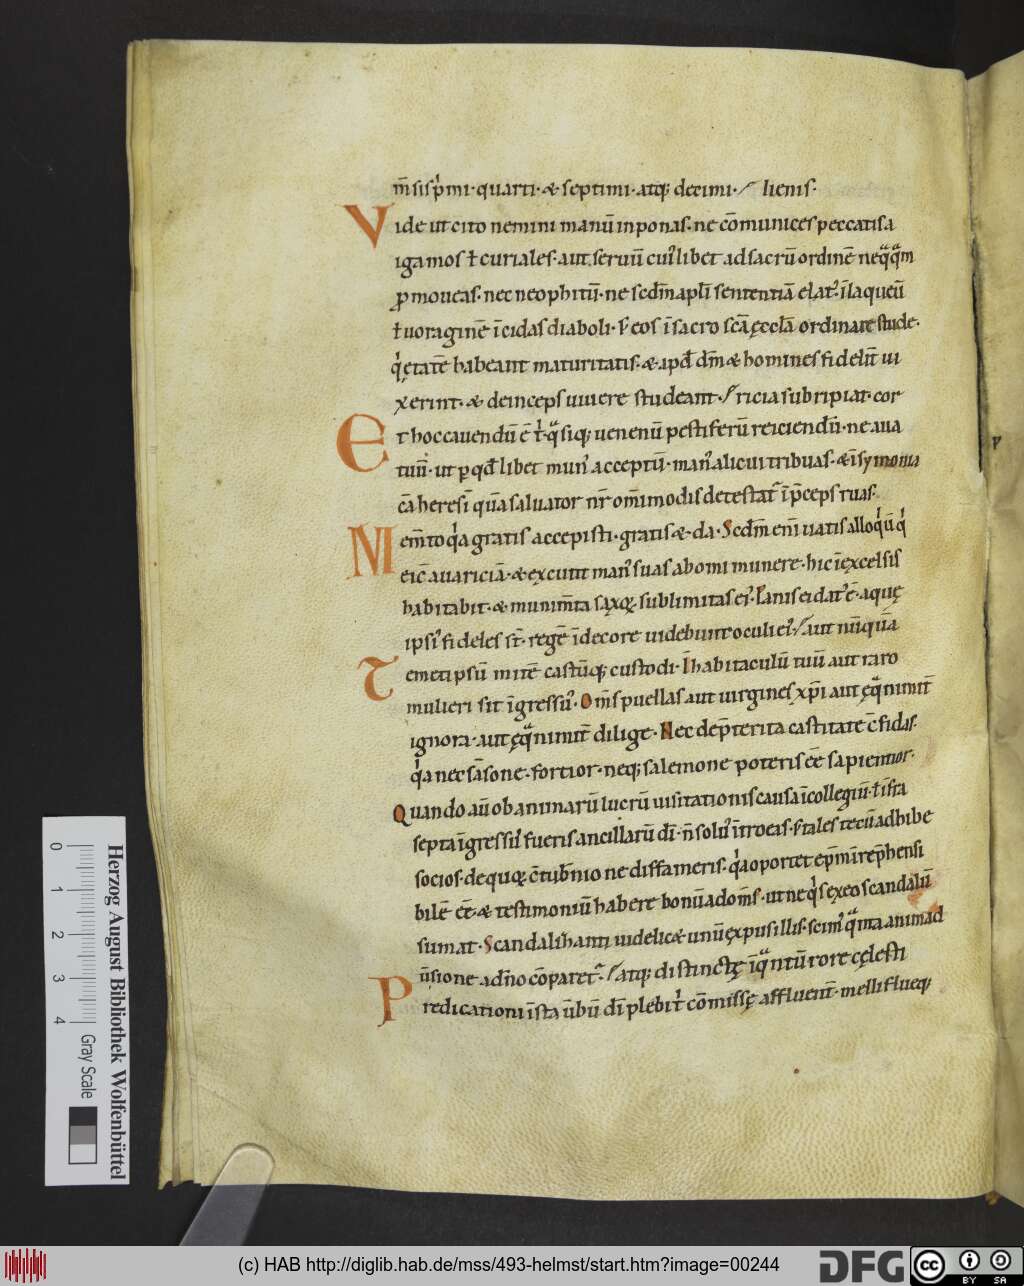 m̄sis p̍mi· quarti· & septimi· atq; decimi· / lienis·
Vide ut cito nemini manū inponas· ne cōmunices peccatis a
igamos ł curiales· aut seruū cui᷒libet ad sacrū ordinē neq̄q̄m
ꝓmoueas· nec neophitū· ne scdm̄ apl̄i sententiā elat᷒ ī laqueū
ł uoraginē īcidas diaboli· s; eos ī sacro scā ęccl̄a ordinare stude·
q̍ ętatē habeant maturitatis· & apd̄ dm̄ & homines fidelit̄ ui
xerint· & deinceps uiuere studeant· / ricia subripiat· cor
Et hoc cauendū ē t̍· q̄si q; uenenū pestiferū reiciendū· ne aua
tuū· ut ꝑ qd̄libet mun᷒ acceptū· man᷒ alicui tribuas· & ī symonia
cā heresī quā saluator nr̄ om̄imodis detestat᷒ īp̄ceps ruas·
Mem̄to q̍a gratis accepisti· gratis & da· Scdm̄ enī uatis alloq̍ū q̍
eic̄ auariciā· & excutit man᷒ suas ab omi munere· hic ī excelsis
habitabit· & munim̄ta saxoꝝ sublimitas ei᷒· Panis ei dat᷒ ē· aquę
ipsi᷒ fideles st̄· regē ī decore uidebunt oculi ei᷒· / aut nūquā
Temetipsū mitē castūq; custodi· In habitaculū tuū aut raro
mulieri sit īgressu᷒· Om̄s puellas aut uirgines xp̄i aut ęq̄nimit̄
ignora· aut ęq̄nimit̄ dilige· Nec de p̄terita castitate c̄fidas·
q̍a nec sāsone· fortior· neq; salemone poteris eē sapientior·
Quando aū ob animarū lucrū uisitationis causa ī collegiū· ł īfra
septa īgressu᷒ fueris ancillarū dī· n̄ solu᷒ ītroeas· s; tales tecū adhibe
socios· de quoꝝ c̄tub̄nio ne diffameris· q̍a oportet ep̄m īrep̄hensi
bilē eē· & testimoniū habere bonū ad om̄s· ut ne q̍s ex eo scandalū
sumat· Scandalizhanti uidelic& unū ex pusillis· scim᷒ q̄nta animad
ūsione a dn̄o cōparet᷒· / atq; distinctę īq̄ntū rore cęlesti
Predicationi īsta ūbū dī plebi t̍ cōmissę affluent̄· mellifluęq;
0 1 2 3 4
Gray Scale
Herzog August Bibliothek Wolfenbüttel
(c) HAB http://diglib.hab.de/mss/493-helmst/start.htm?image=00244
DFG
cc BY SA